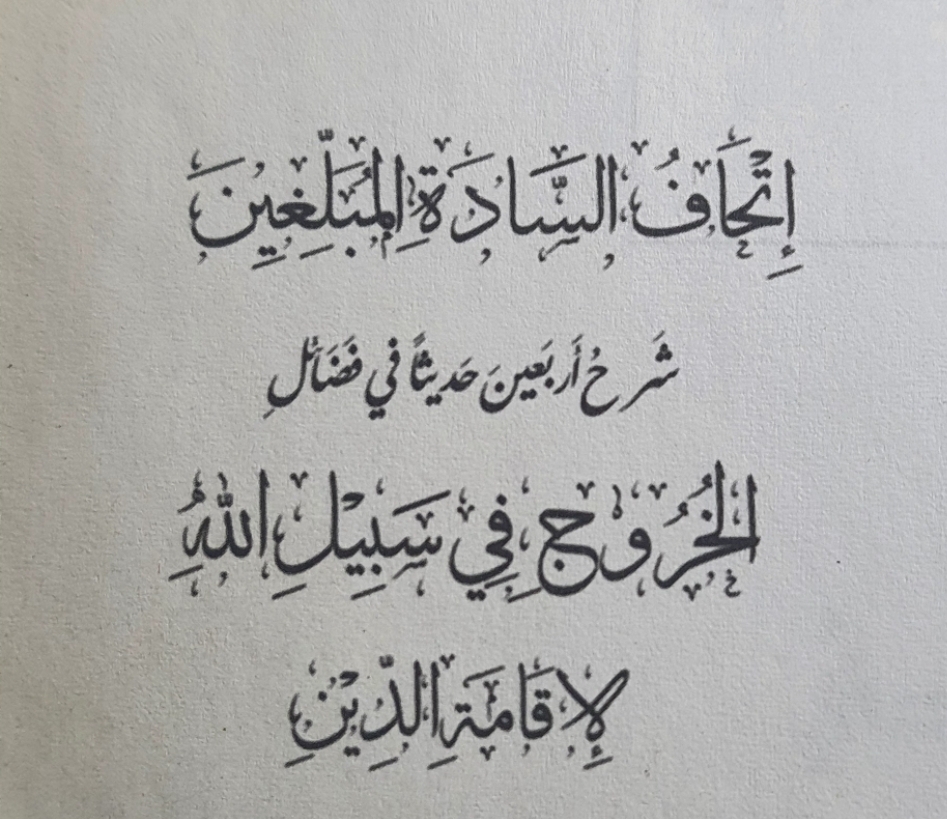 إِتْحَافُ السَّادَةِ المُبَلِّغِينَ
شَرحُ أَربَعِينَ حَدِيثًا فِي فَضَائلِ
الخُرُوجِ فِي سَبِيْلِ اللهِ
لِإقَامَةِ الدِّيْنِ